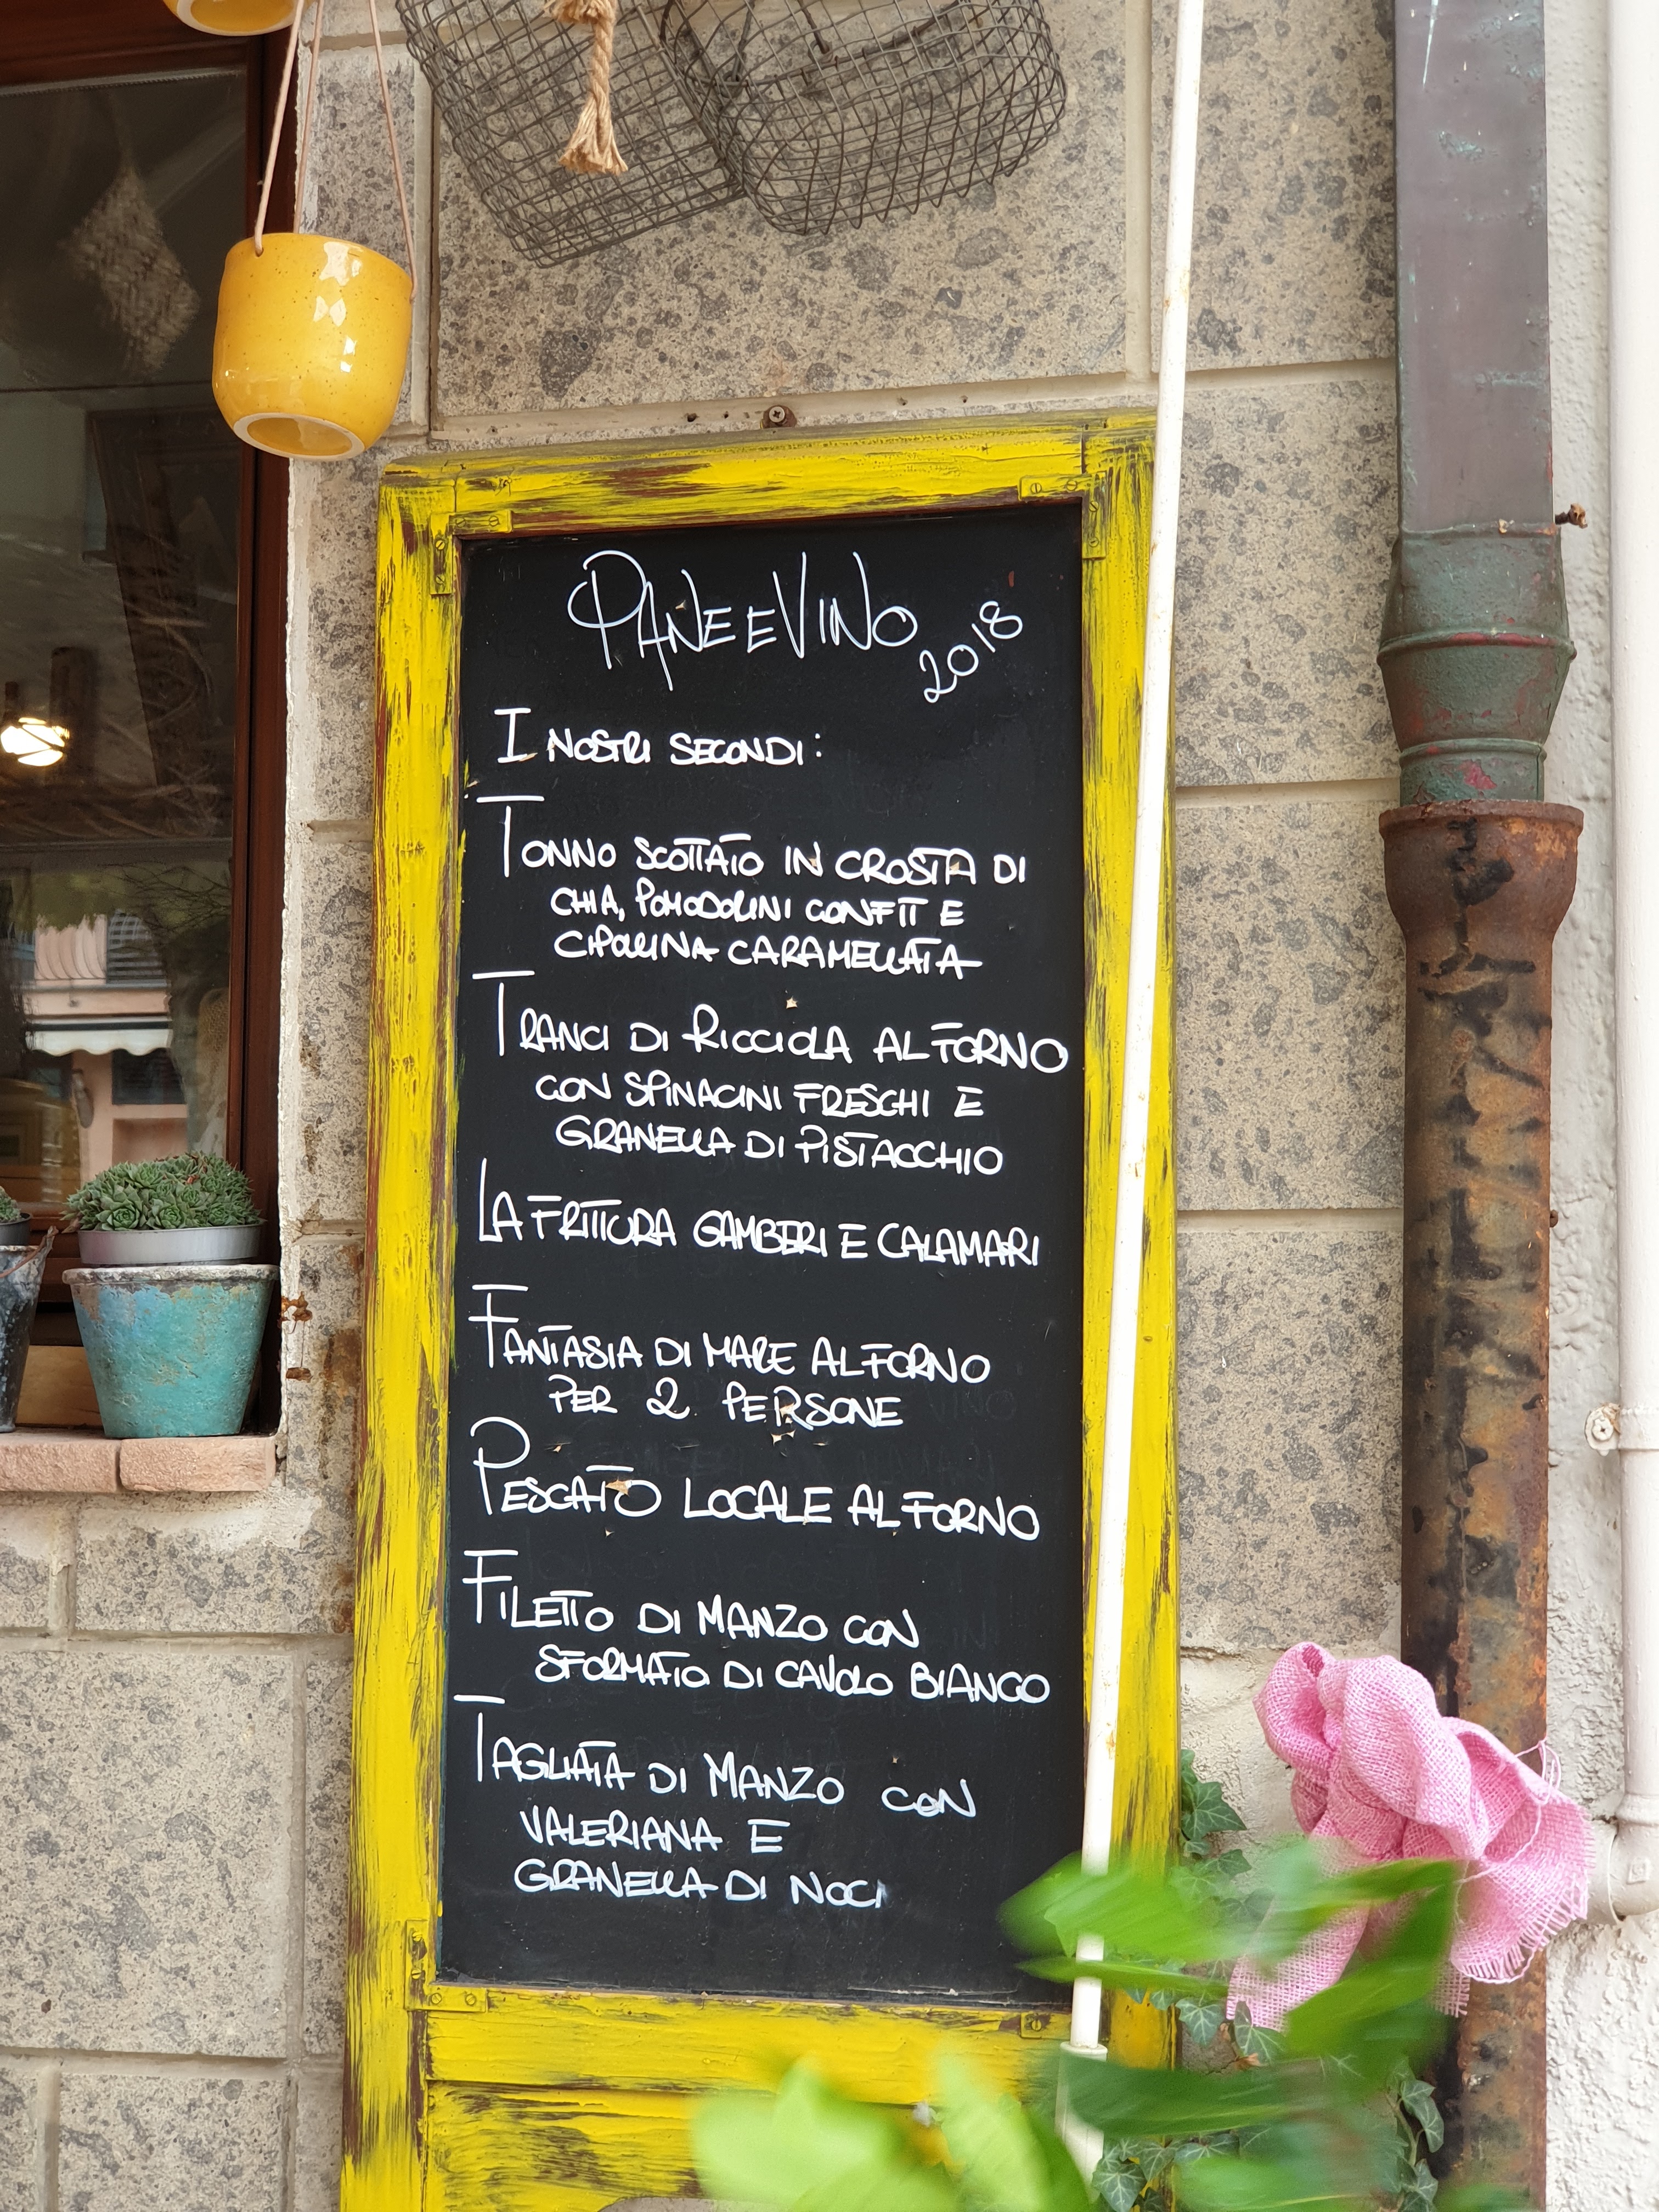 PANE E VINO
2018
I NOSTRI SECONDI:
TONNO SCOTTATO IN CROSTA DI
CHIA, POMODORINI CONFIT E
CIPOLLINA CARAMELLATA
TRANCI DI RICCIOLA AL FORNO
CON SPINACINI FRESCHI E
GRANELLA DI PISTACCHIO
LA FRITTURA GAMBERI E CALAMARI
FANTASIA DI MARE AL FORNO
PER 2 PERSONE
PESCATO LOCALE AL FORNO
FILETTO DI MANZO CON
SFORMATO DI CAVOLO BIANCO
TAGLIATA DI MANZO CON
VALERIANA E
GRANELLA DI NOCI